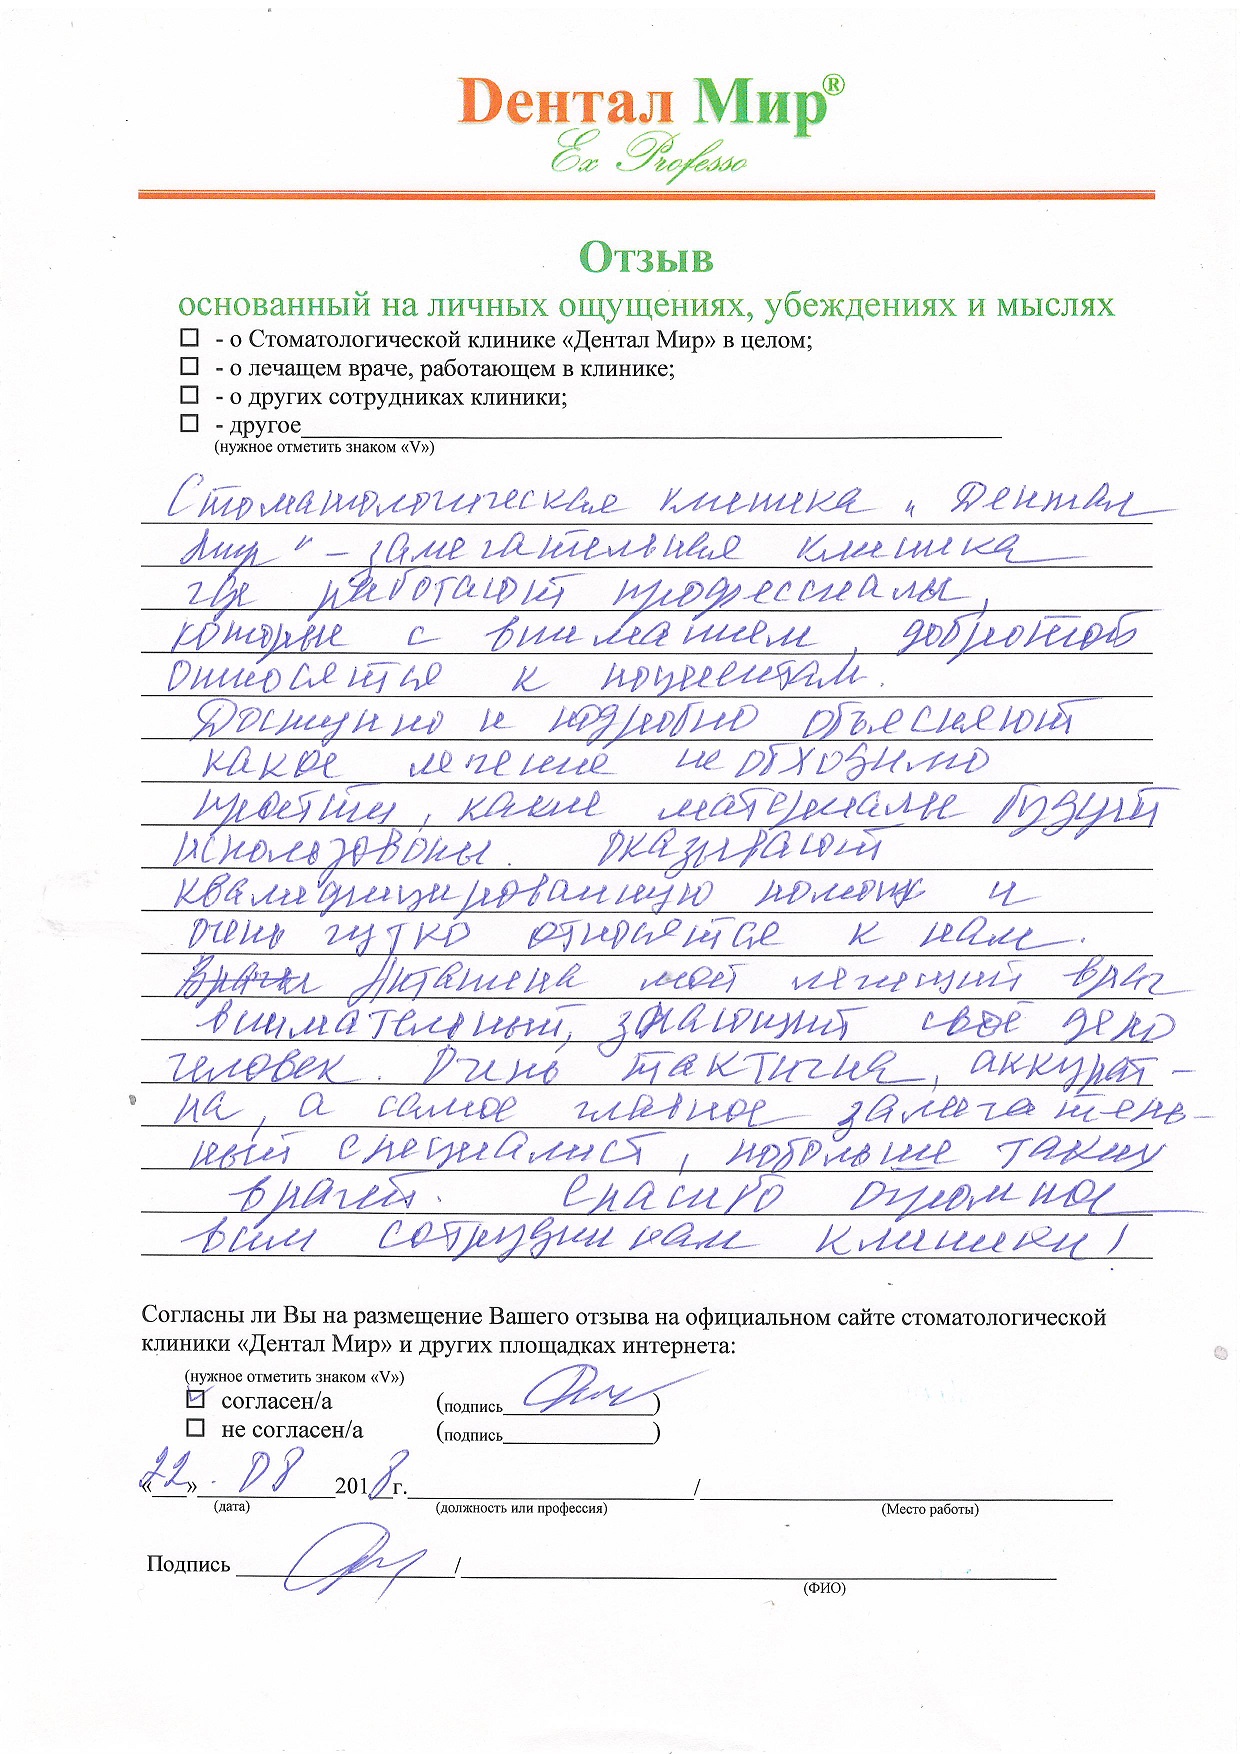 Dентал Мир®
Ex Professo
Отзыв
основанный на личных ощущениях, убеждениях и мыслях
☐ - о Стоматологической клинике «Дентал Мир» в целом;
☐ - о лечащем враче, работающем в клинике;
☐ - о других сотрудниках клиники;
☐ - другое
(нужное отметить знаком «V»)
Стоматологическая клиника „Дентал
Мир" – замечательная клиника
где работают профессиалы,
которые с вниманием, добротой
относятся к пациентам.
Доступно и подробно объясняют
какое лечение необходимо
пройти, какие материалы будут
использованы. Оказывают
квалифицированную помощь и
очень чутко относятся к нам.
мой лечащий врач
внимательный, знающий своё дело
человек. Очень тактична, аккурат-
на, а самое главное замечатель-
ный специалист, побольше таких
врачей. Спасибо огромное
всем сотрудникам клиники!
Согласны ли Вы на размещение Вашего отзыва на официальном сайте стоматологической
клиники «Дентал Мир» и других площадках интернета:
(нужное отметить знаком «V»)
☑ согласен/а (подпись )
☐ не согласен/а (подпись )
«22» . 08 2018 г. /
(дата) (должность или профессия) (Место работы)
Подпись /
(ФИО)